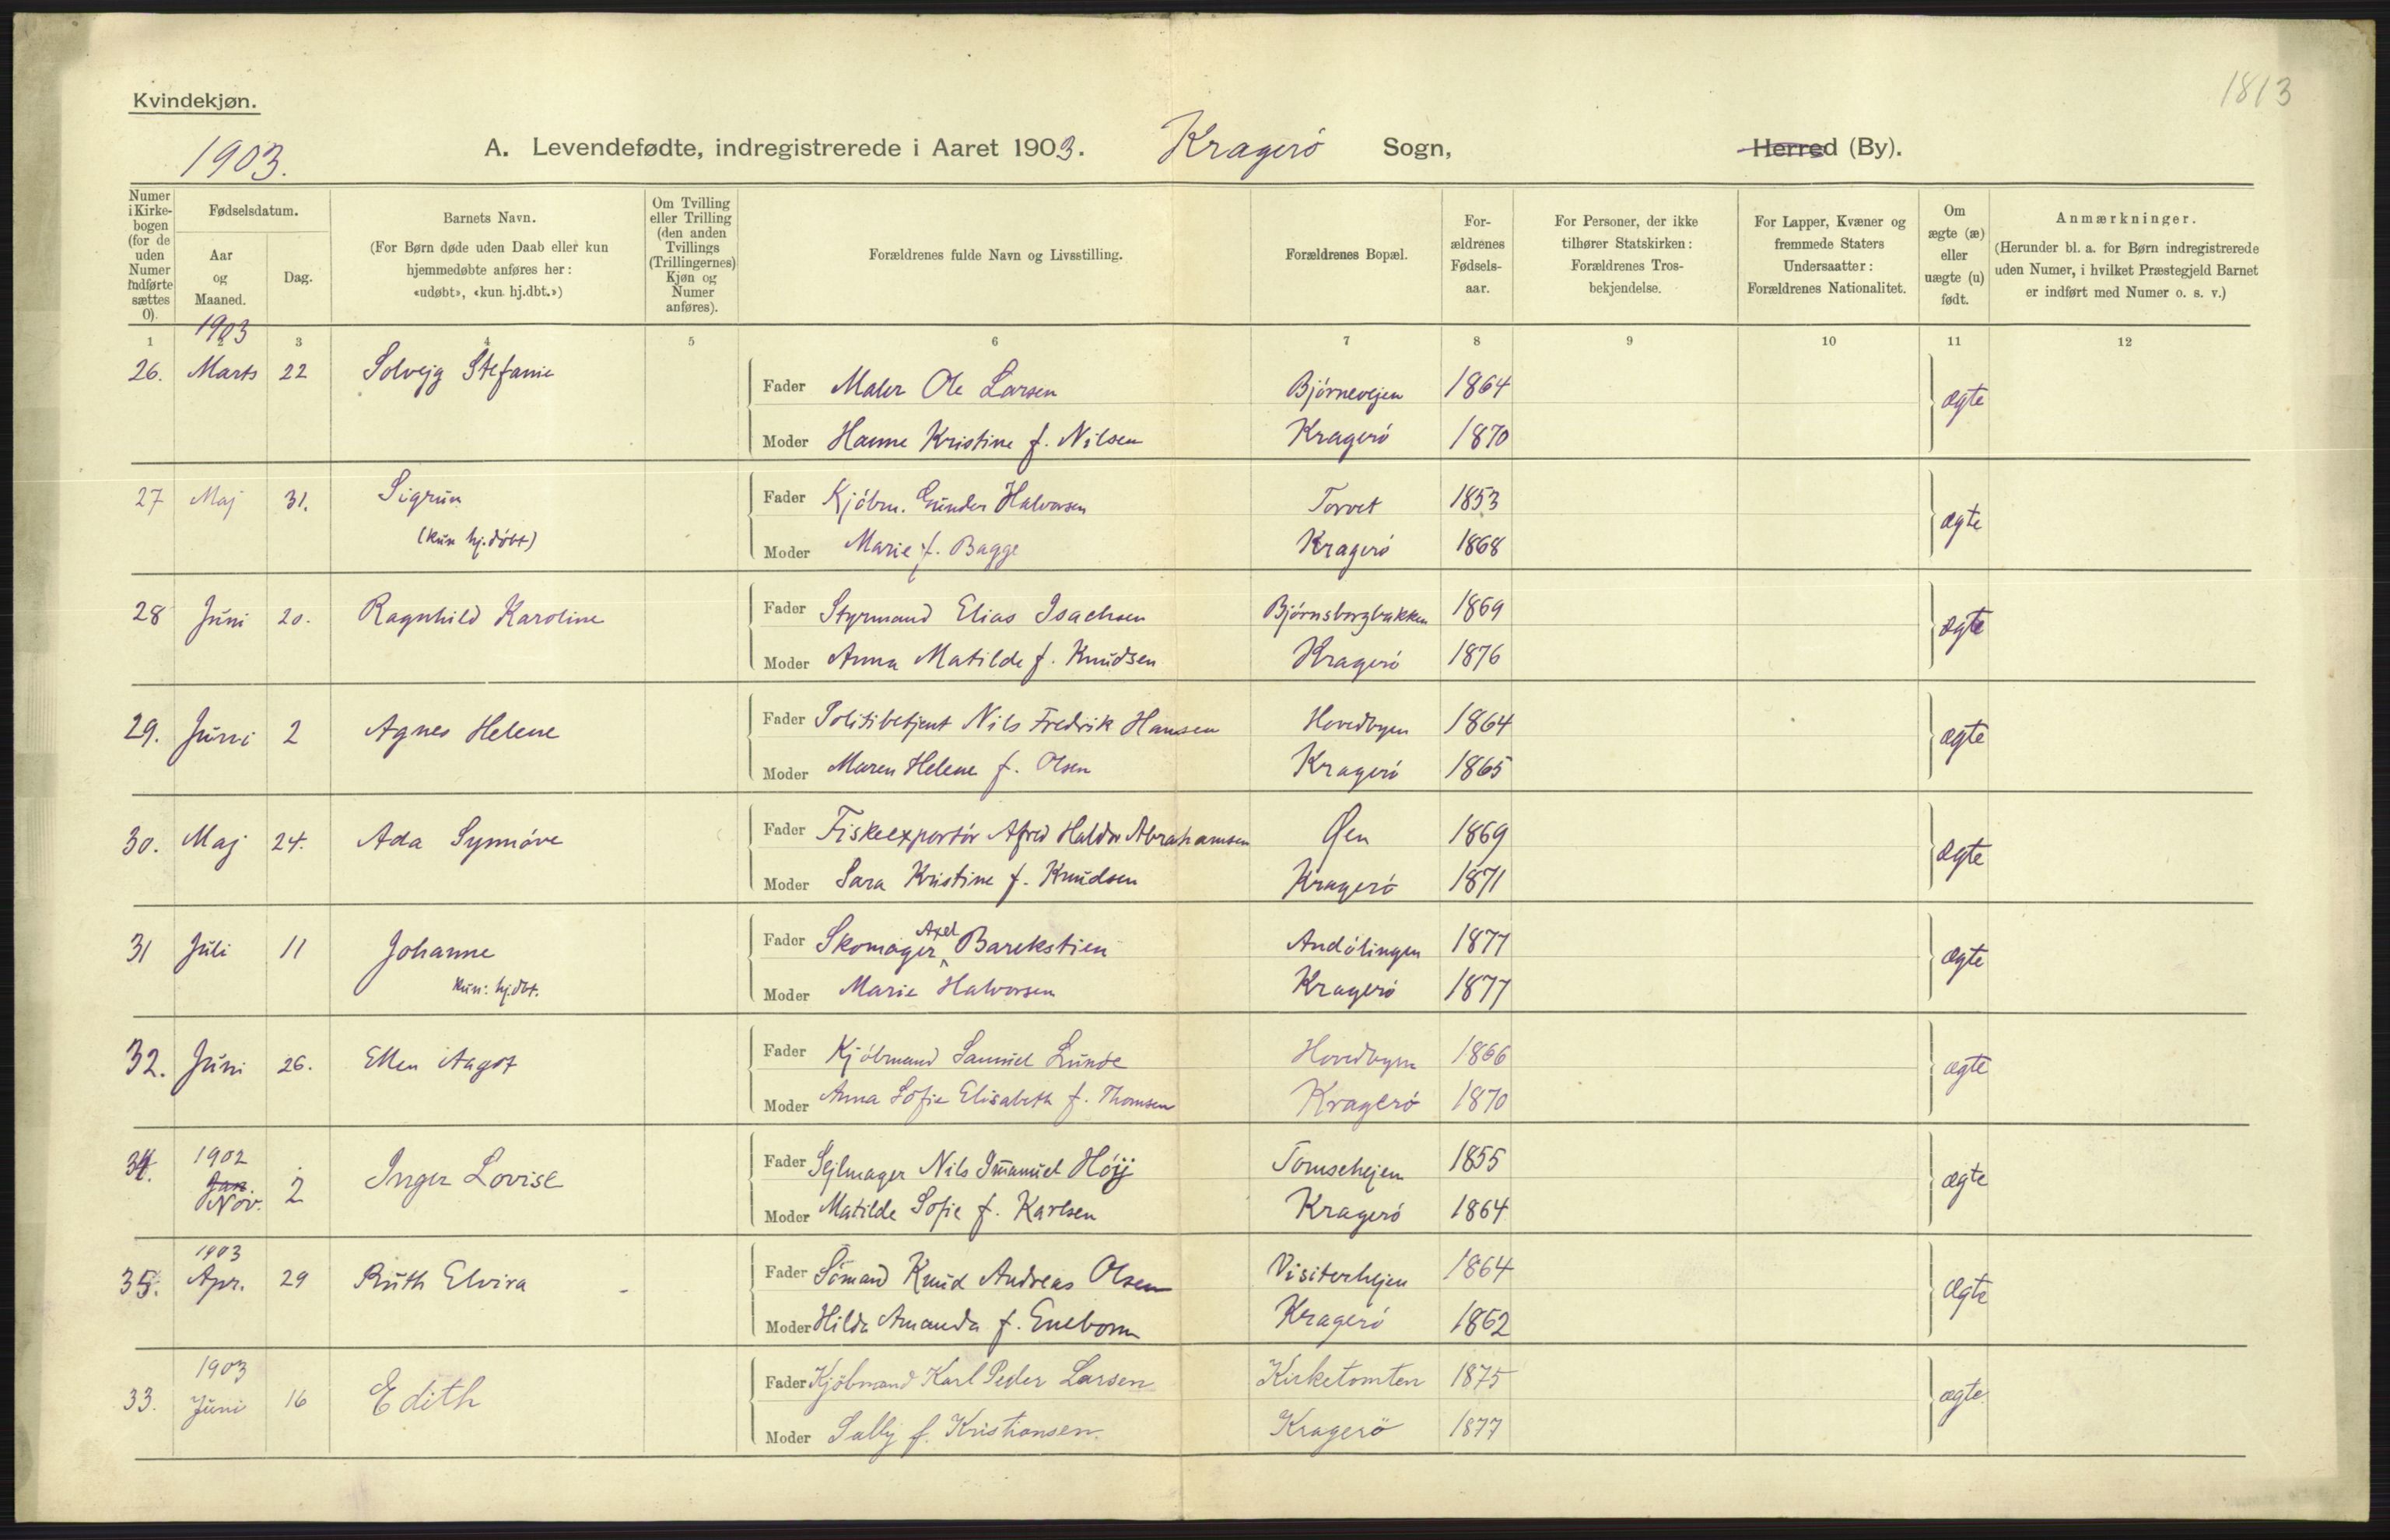 1813
Kvindekjøn.
1903.
A. Levendefødte, indregistrerede i Aaret 1903. Kragerö Sogn, Herred (By).
Numer i Kirkebogen (for de uden Numer indførte sættes 0).
Fødselsdatum.
Aar og Maaned.
Dag.
Barnets Navn.
(For Børn døde uden Daab eller kun hjemmedøbte anføres her: «udøbt», «kun hj.dbt.»)
Om Tvilling eller Trilling (den anden Tvillings (Trillingernes) Kjøn og Numer anføres).
Forældrenes fulde Navn og Livsstilling.
Forældrenes Bopæl.
Forældrenes Fødselsaar.
For Personer, der ikke tilhører Statskirken: Forældrenes Trosbekjendelse.
For Lapper, Kvæner og fremmede Staters Undersaatter: Forældrenes Nationalitet.
Om ægte (æ) eller uægte (u) født.
Anmærkninger.
(Herunder bl. a. for Børn indregistrerede uden Numer, i hvilket Præstegjeld Barnet er indført med Numer o. s. v.)
1903
1 2 3 4 5 6 7 8 9 10 11 12
26. Marts 22 Solvejg Stefanie Fader Maler Ole Larsen Bjórnevejen 1864 ægte
Moder Hanne Kristine f. Nilsen Krageró 1870
27 Maj 31. Sigrun Fader Kjóbm. Gunder Halvorsen Torvet 1853 ægte
(kun hj.döbt) Moder Marie f. Bagge Krageró 1868
28 Juni 20. Ragnhild Karoline Fader Styrmand Elias Isachsen Bjórnsborgbakken 1869 ægte
Moder Anna Matilde f. Knudsen Kragerö 1876
29. Juni 2 Agnes Helene Fader Politibetjent Nils Fredrik Hansen Hovedbyen 1864 ægte
Moder Maren Helene f. Olsen Kragerö 1865
30. Maj 24. Ada Synnóve Fader Fiskeexportór Alfred Haldor Abrahamsen Øen 1869 ægte
Moder Sara Kristine f. Knudsen Kragerö 1871
31 Juli 11 Johanne Fader Skomager Axel Barekstien Andólingen 1877 ægte
kun: hj.dbt. Moder Marie Halvorsen Kragerö 1877
32. Juni 26. Ellen Aagot Fader Kjóbmand Samuel Lunde Hovedbyen 1866 ægte
Moder Anna Sofie Elisabeth f. Thomsen Kragerö 1870
34. 1902 Jan. Nov. 2 Inger Lovise Fader Sejlmager Nils Imanuel Höij 1855 ægte
Moder Matilde Sofie f. Karlsen Kragerö 1864
35. 1903 Apr. 29 Ruth Elvira Fader Sömand Knud Andreas Olsen Visiterhejen 1864 ægte
Moder Hilda Amanda f. Eneborn Kragerö 1862
33. 1903 Juni 16 Edith Fader Kjöbmand Karl Peder Larsen Kirketomten 1875 ægte
Moder Sally f. Kristiansen. Kragerö 1877